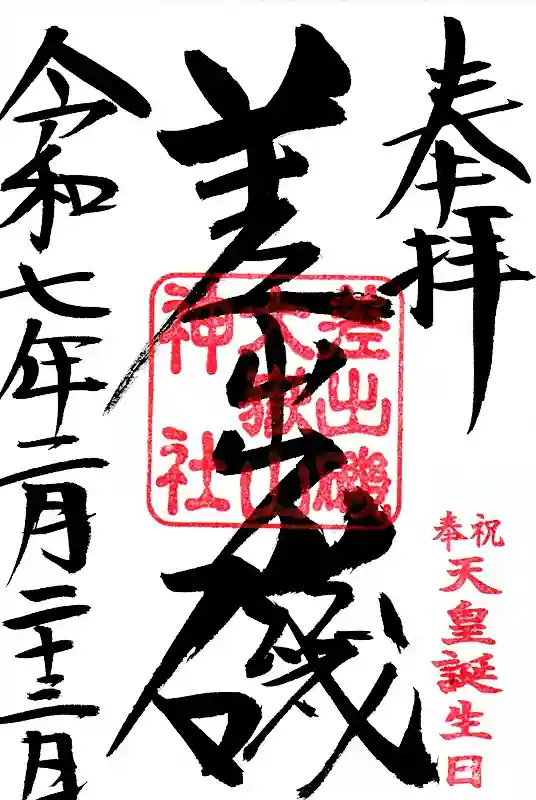 奉拝
差出乃磯
差出磯
大嶽山
神社
奉祝
天皇誕生日
令和七年二月二十三日